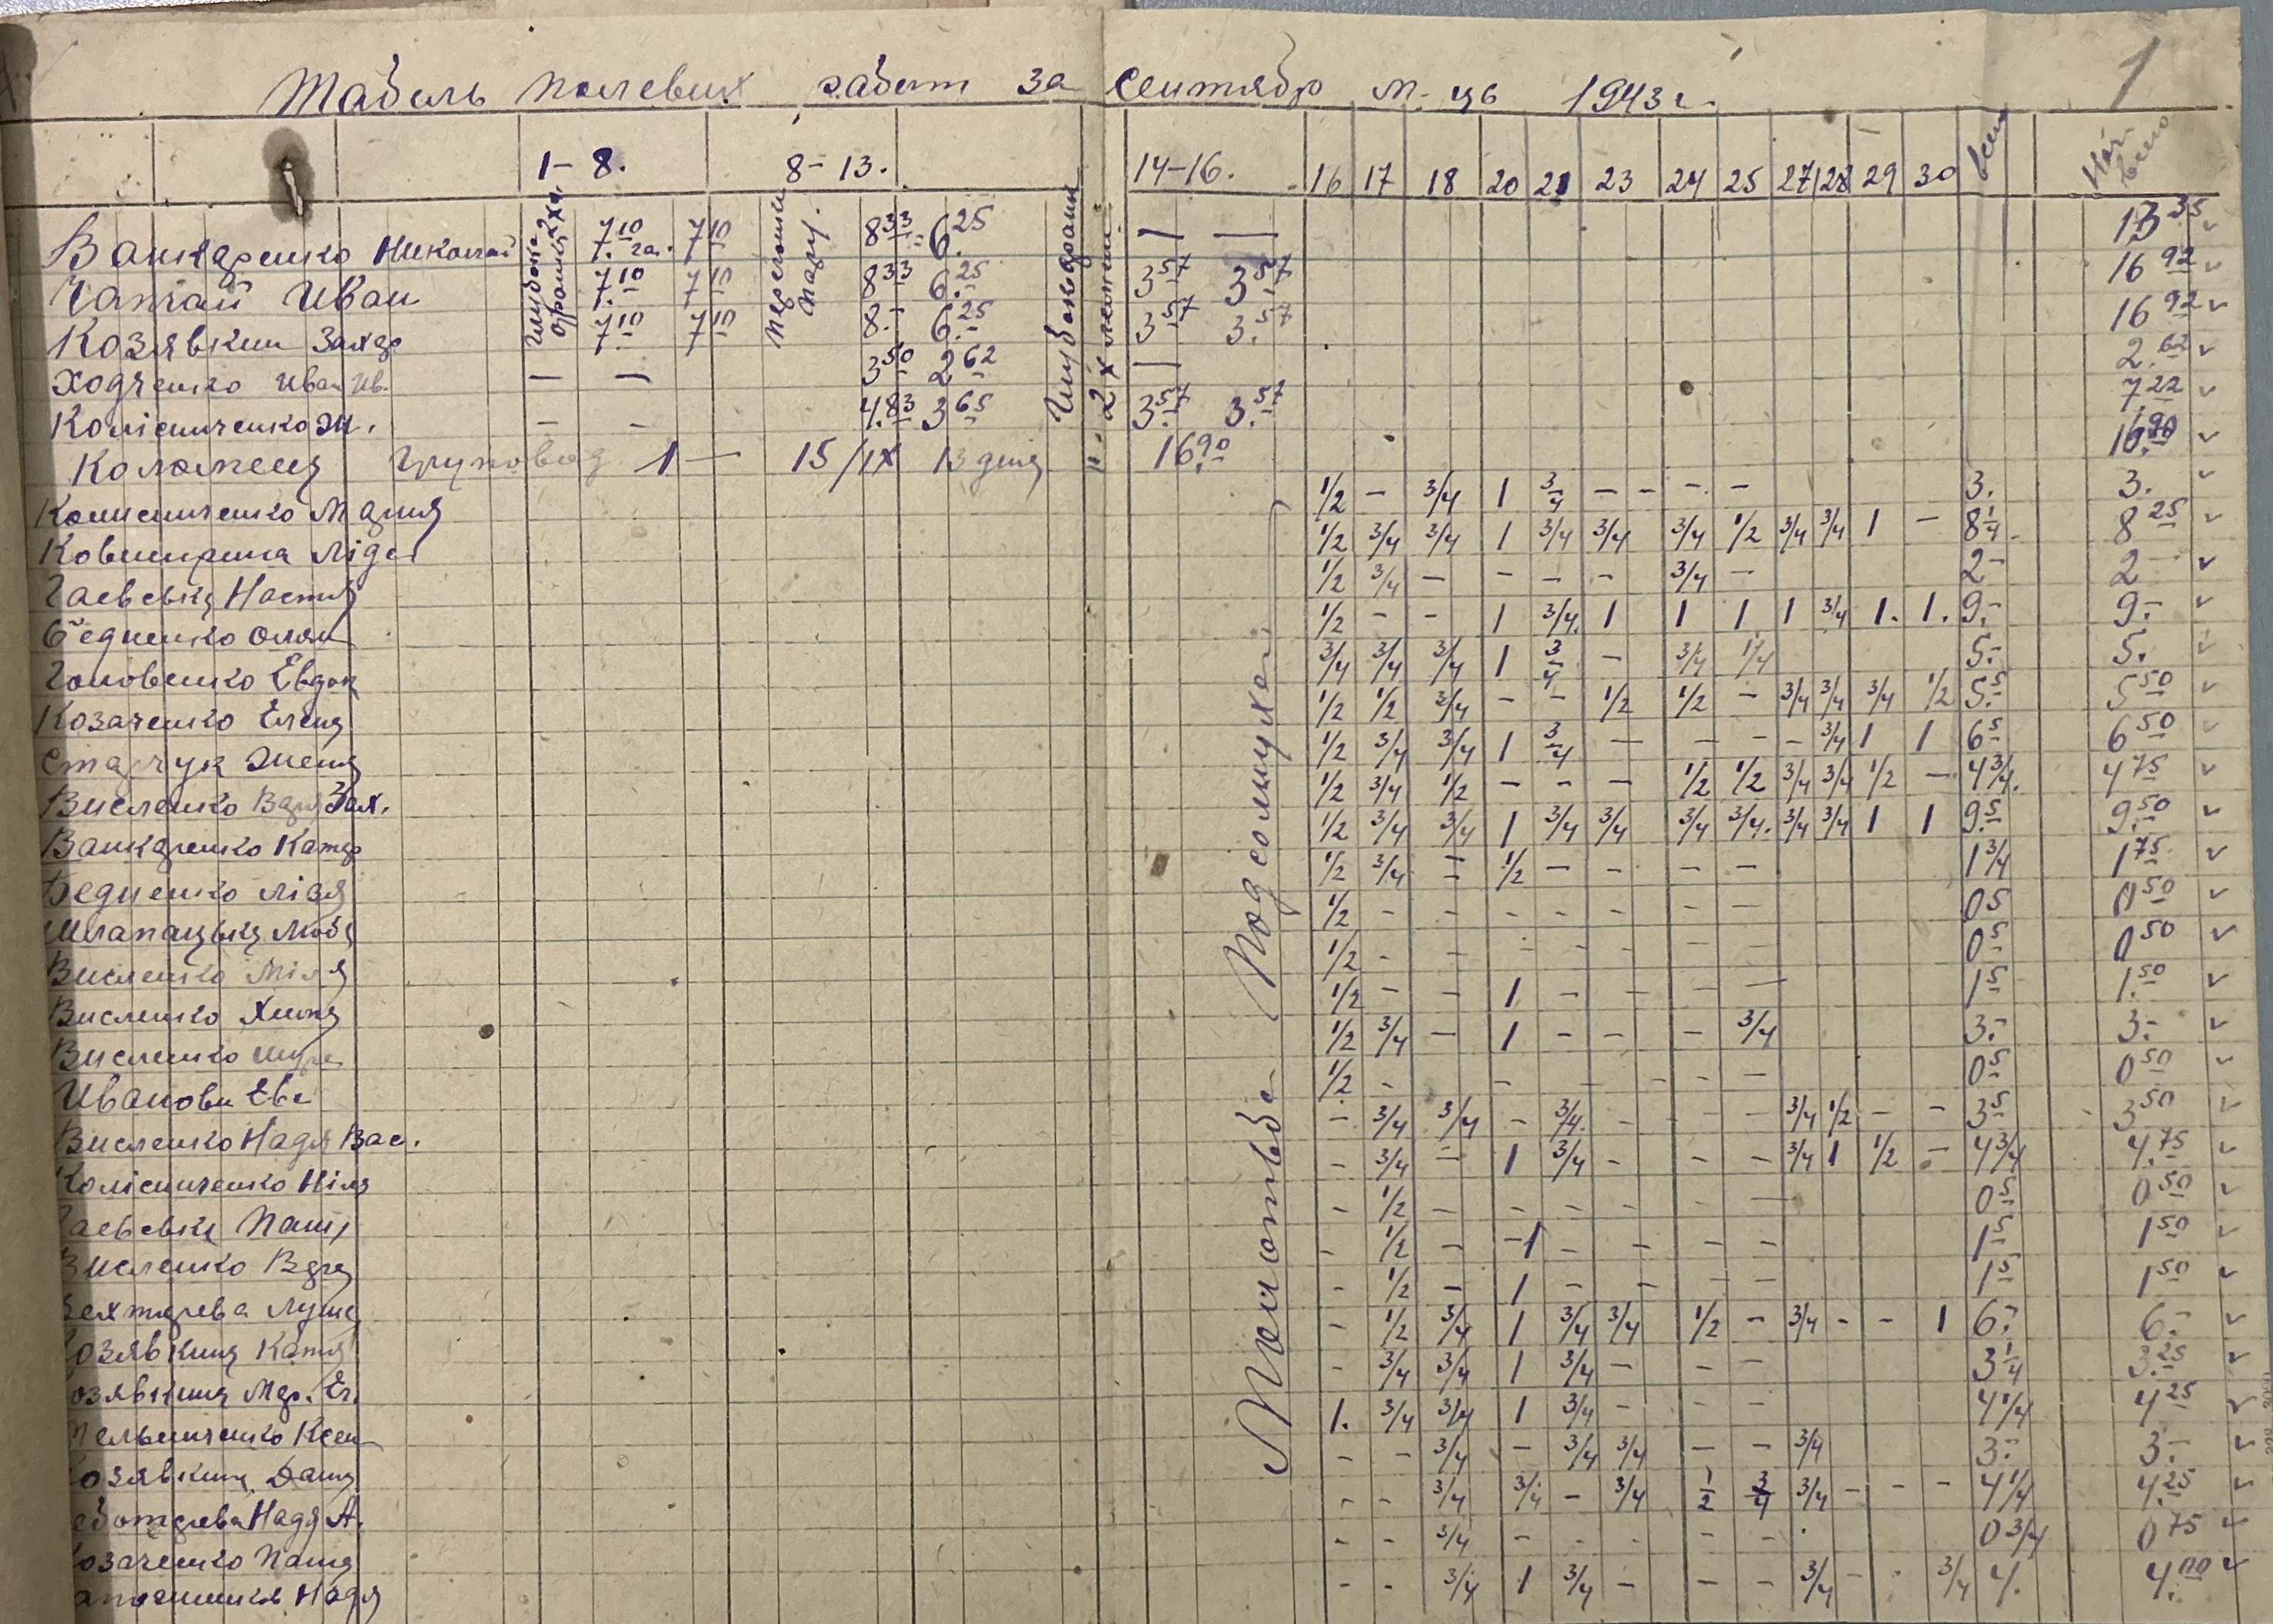 Табель полевих работ за сентябр м-ць 1943 г. 1
1–8. 8–13. 14–16. 16 17 18 20 21 23 24 25 27 28 29 30 всего
Николай 7.10 га. 7.10 8.33 = 6.25 — — 13.35 ✓
Иван 7.10 7.10 8.33 6.25 3.57 3.57 16.92 ✓
Козявкин Захар 7.10 7.10 8.- 6.25 3.57 3.57 16.92 ✓
Ходченко Иван Ив. — — 3.50 2.62 — 2.62 ✓
Колісниченко - - 4.83 3.65 3.57 3.57 7.22 ✓
Коломиец 1 — 15/IX 13 16.90 16.90 ✓
Молотьба Подсолнухов
Колисниченко Мария 1/2 - 3/4 1 3/4 - - - - 3. 3. ✓
Лида 1/2 3/4 3/4 1 3/4 3/4 3/4 1/2 3/4 3/4 1 - 8 1/4 8.25 ✓
Гаевська Настя 1/2 3/4 - - - - 3/4 - 2- 2- ✓
Бедненко 1/2 - - 1 3/4 1 1 1 1 3/4 1. 1. 9.- 9.- ✓
Головенко Евдок 3/4 3/4 3/4 1 3/4 - 3/4 1/4 5.- 5. ✓
Козаченко Елена 1/2 1/2 3/4 - - 1/2 1/2 - 3/4 3/4 3/4 1/2 5.5 5.50 ✓
Старчук Женя 1/2 3/4 3/4 1 3/4 - - - - 3/4 1 1 6.5 6.50 ✓
Висленко Варя Зах. 1/2 3/4 1/2 - - - 1/2 1/2 3/4 3/4 1/2 - 4 3/4. 4.75 ✓
Катер 1/2 3/4 3/4 1 3/4 3/4 3/4 3/4. 3/4 3/4 1 1 9.5 9.50 ✓
Бедненко Лізя 1/2 3/4 - 1/2 - - - - 1 3/4 1.75 ✓
Люба 1/2 - - - - - - - 05 0.50 ✓
Висленко Міля 1/2 - - - - - - - 0.5 0.50 ✓
Висленко 1/2 - - 1 - - - - 1.5 1.50 ✓
Висленко Шура 1/2 3/4 - 1 - - - 3/4 3.- 3.- ✓
Иванова Ева 1/2 - - - - - - 0.5 0.50 ✓
Висленко Надя Вас. - 3/4 3/4 - 3/4 - - - 3/4 1/2 - - 3.5 3.50 ✓
Колісниченко Ніля - 3/4 - 1 3/4 - - - 3/4 1 1/2 - 4 3/4 4.75 ✓
Гаевська Паша - 1/2 - - - - - - 0.5 0.50 ✓
Висленко Варя - 1/2 - -1 - - - - 1.5 1.50 ✓
Луша - 1/2 - 1 - - - - 1.5 1.50 ✓
Козявкина Катя - 1/2 3/4 1 3/4 3/4 1/2 - 3/4 - - 1 6.- 6.- ✓
Козявкина Мар. Ег. - 3/4 3/4 1 3/4 - - - 3 1/4 3.25 ✓
Ксен 1. 3/4 3/4 1 3/4 - - - 4 1/4 4.25 ✓
Козявкина Даша - - 3/4 - 3/4 3/4 - - 3/4 3.- 3.- ✓
Надя А. - - 3/4 3/4 - 3/4 1/2 3/4 3/4 - - - 4 1/4 4.25 ✓
Козаченко Паша - - 3/4 - - - - - 0 3/4 0.75 ✓
Надя - - 3/4 1 3/4 - - - 3/4 - - 3/4 4. 4.00 ✓